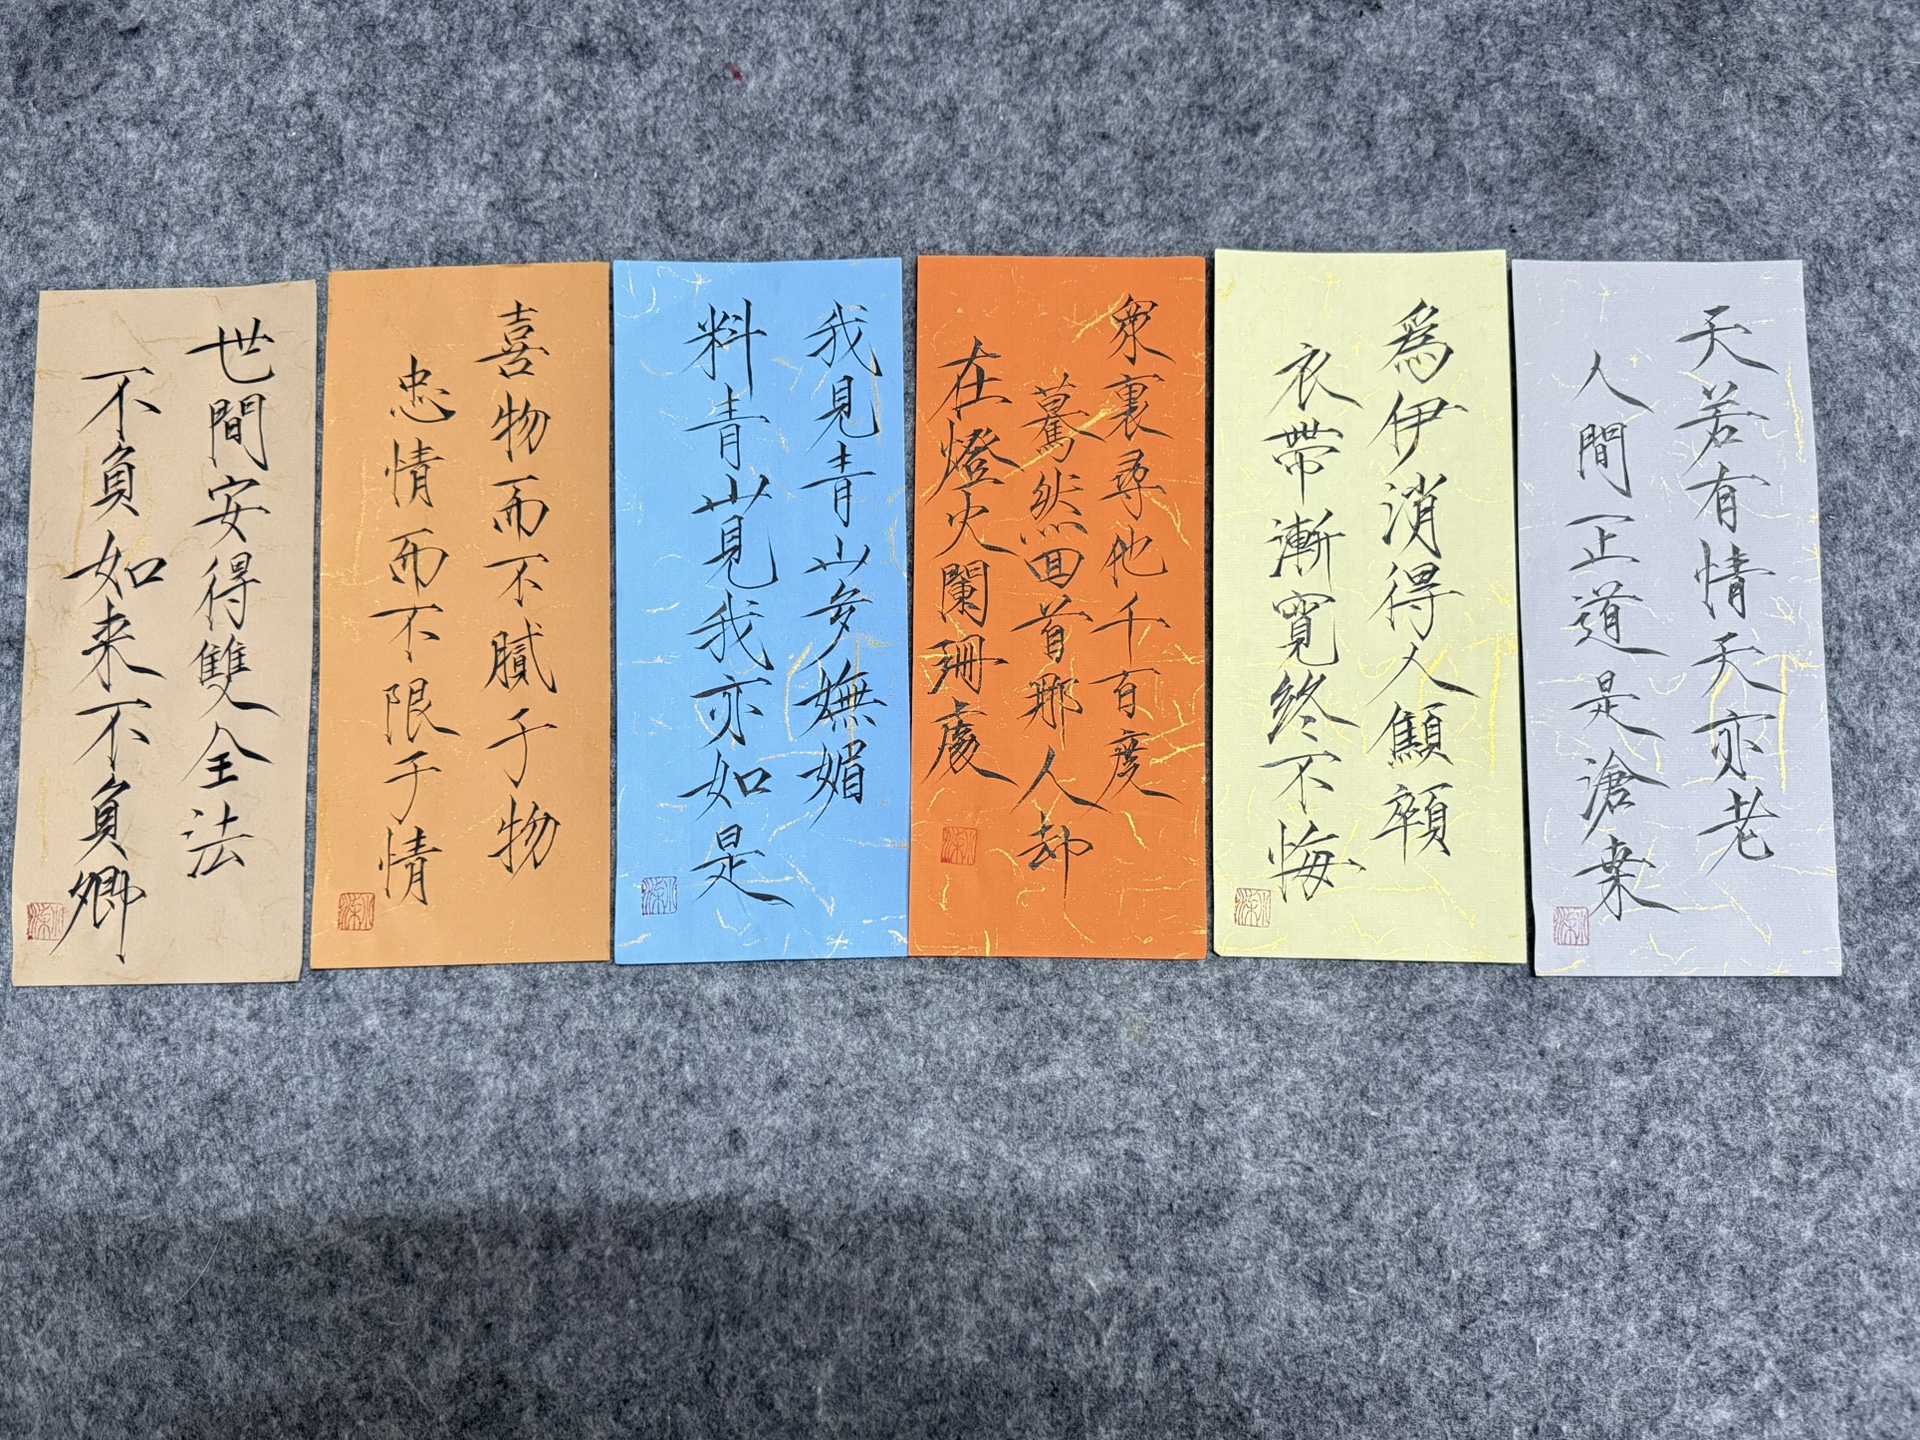 天若有情天亦老
人間正道是滄桒
爲伊消得人顦顇
衣帶漸寬終不悔
衆裏尋他千百度
驀然回首那人却
在燈火闌珊處
我見青山多嫵媚
料青山見我亦如是
喜物而不膩于物
忠情而不限于情
世間安得雙全法
不負如来不負卿